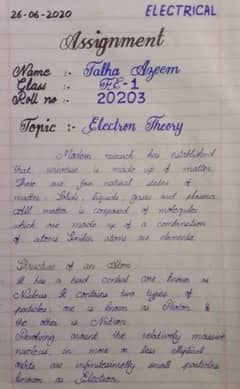 26-06-2020 ELECTRICAL
Assignment
Name :- Talha Azeem
Class :- FE-1
Roll no :- 20203
Topic :- Electron Theory
Modern research has established
that universe is made up of matter.
There are four natural states of
matter. Solids, liquids, gases and plasma.
All matter is composed of molecules
which are made up of a combination
of atoms. Similar atoms are elements.
Structure of an Atom:
It has a hard central core known as
Nucleus. It contains two types of
particles; one is known as Proton &
the other is Nutron.
Revolving around the relatively massive
nucleus, in more or less elliptical
orbits are infinitesimally small particles
known as Electron.